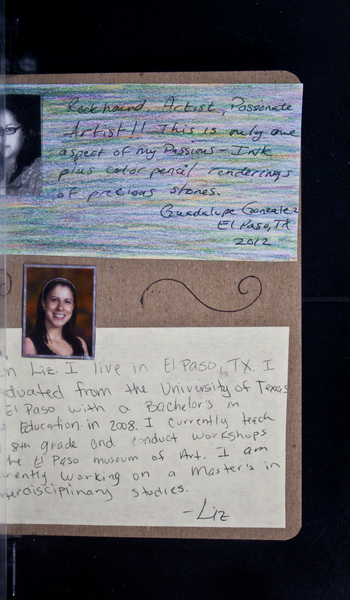 Rockhound, Artist, Passonate
Artist!! This is only one
aspect of my Passions - Ink
plus color pencil renderings
of precious stones.
Guadalupe Gonzalez
El Paso, TX
2012
Liz. I live in El Paso, TX. I
duated from the University of Texas
El Paso with a Bachelor's in
Education in 2008. I currently teach
8th grade and conduct workshops
he El Paso museum of Art. I am
rrently working on a Master's in
terdisciplinary studies.
- Liz